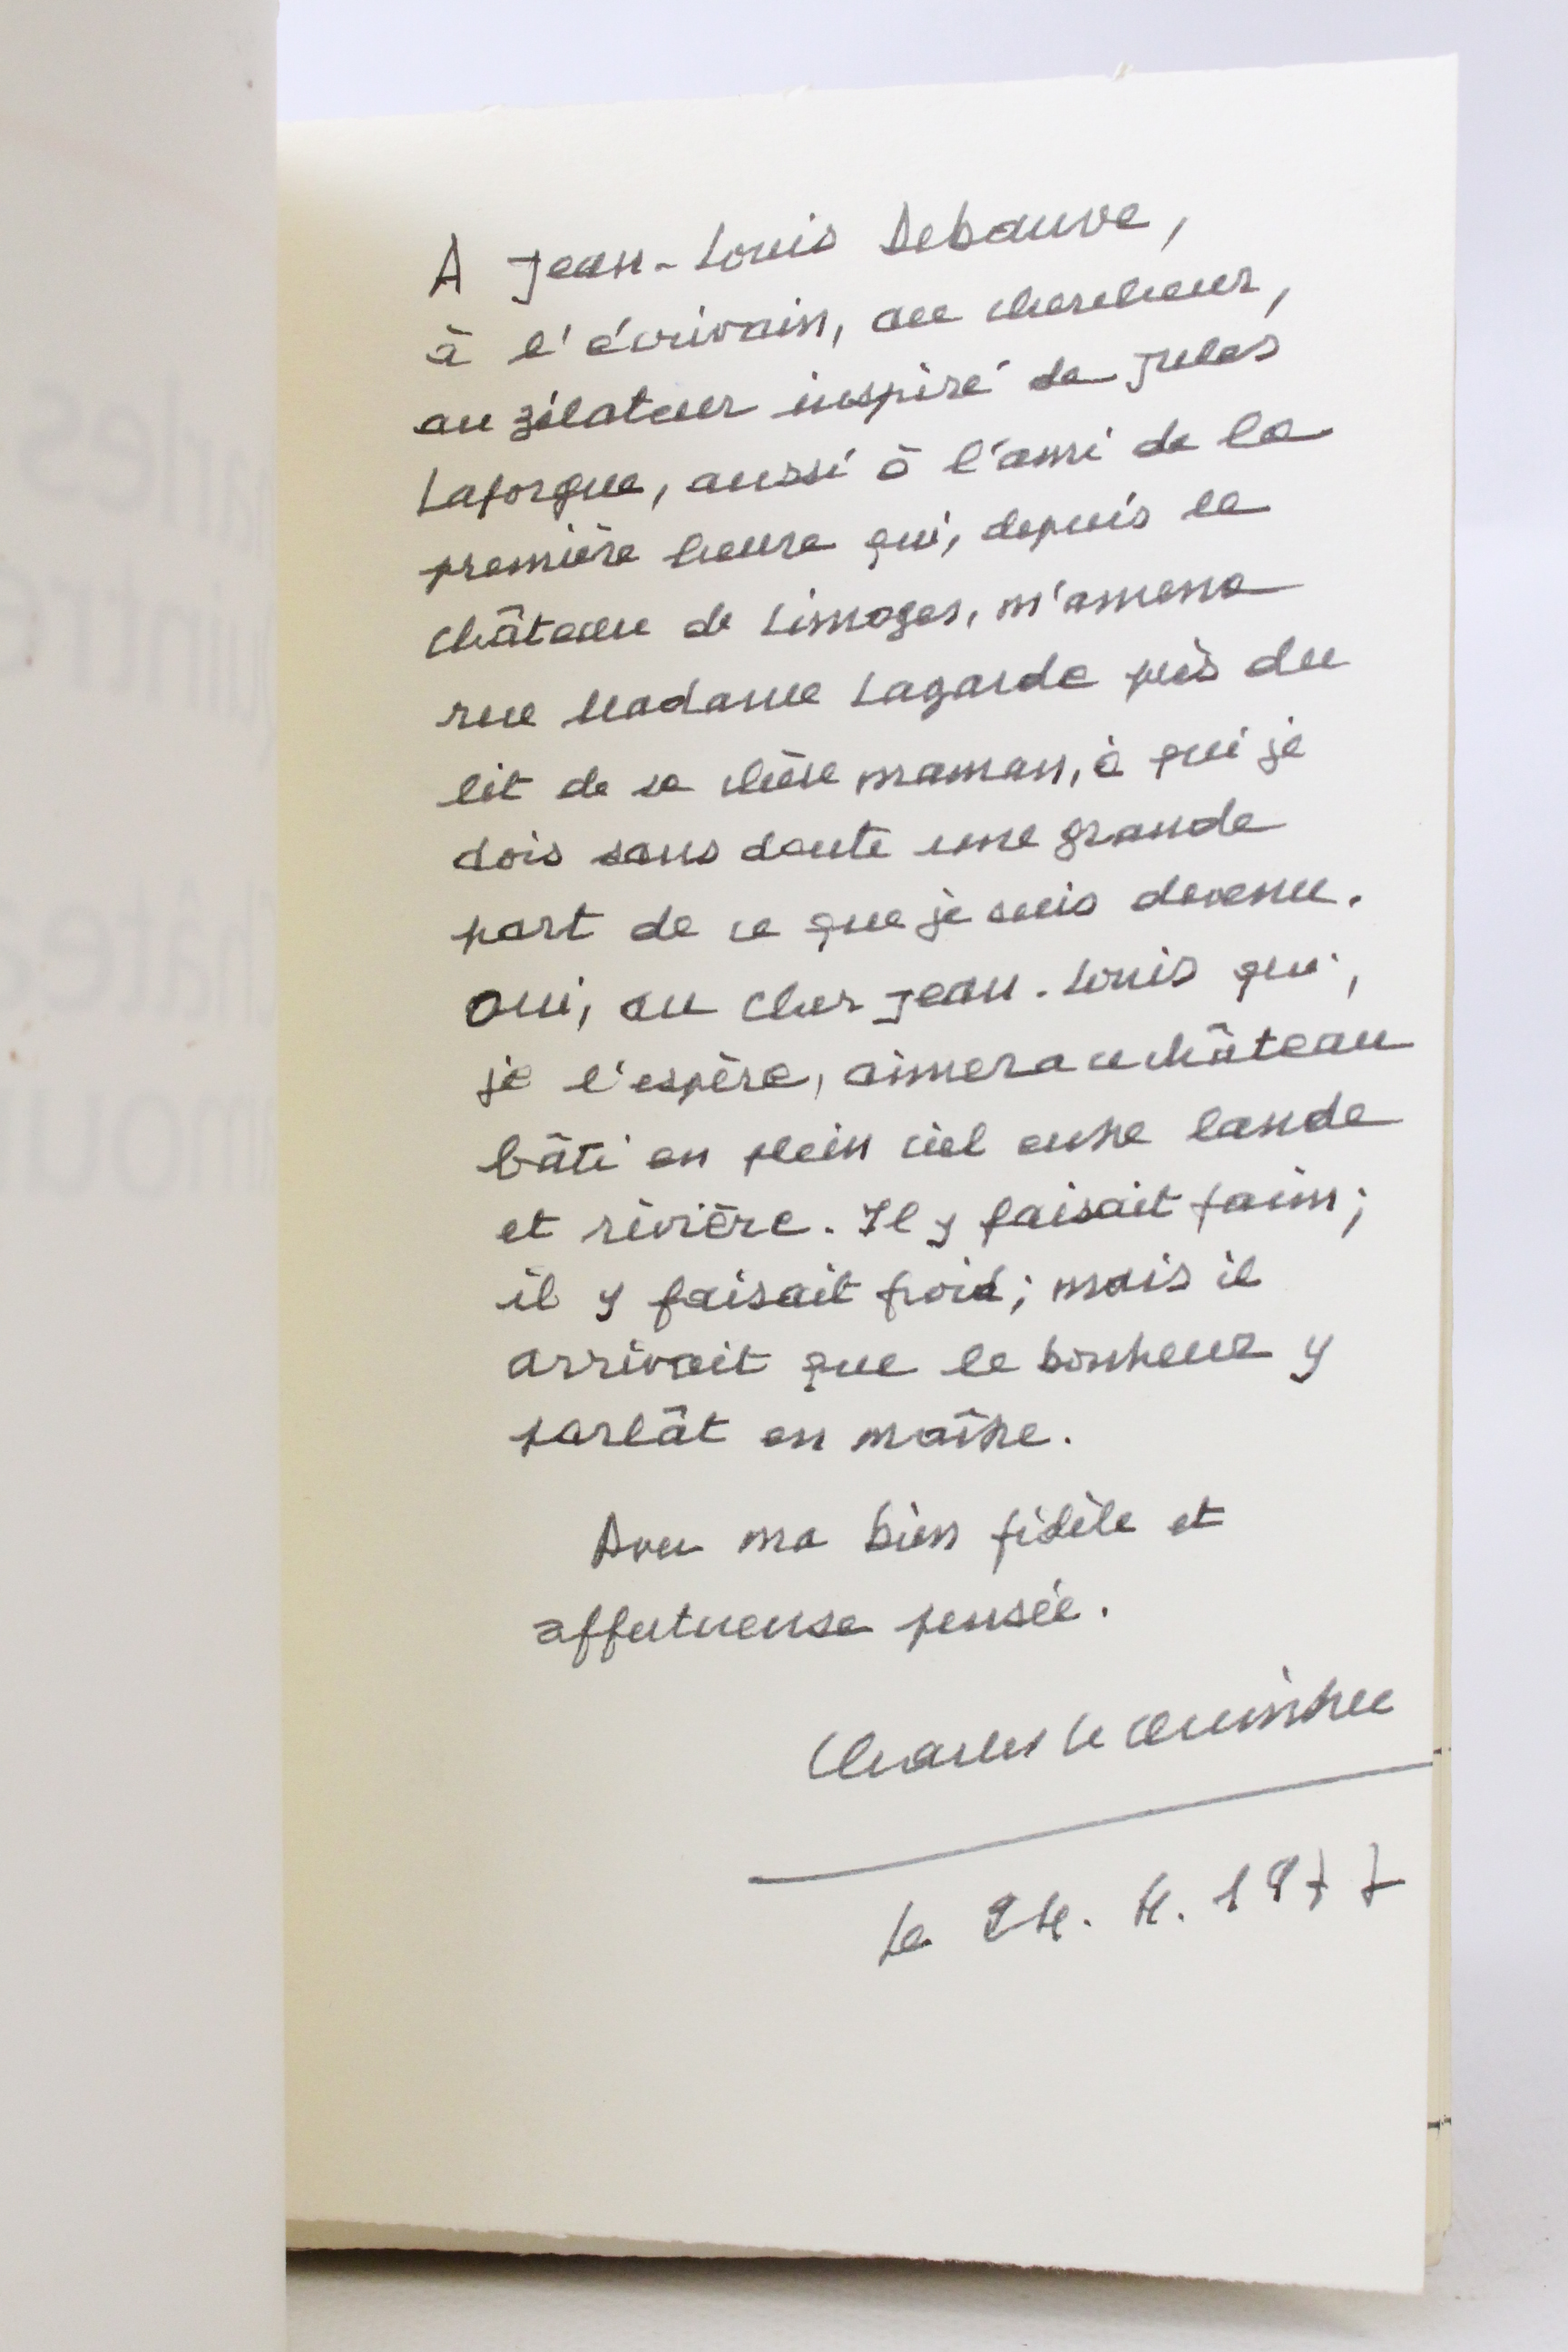 A Jean-Louis Debauve,
à l'écrivain, au chercheur,
au zélateur inspiré de Jules
Laforgue, aussi à l'ami de la
première heure qui, depuis le
château de Limoges, m'amena
rue Madame Lagarde près du
lit de sa chère maman, à qui je
dois sans doute une grande
part de ce que je suis devenu.
Oui, au cher Jean-Louis qui,
je l'espère, aimera ce château
bâti en plein ciel entre lande
et rivière. Il y faisait faim;
il y faisait froid; mais il
arrivait que le bonheur y
parlât en maître.
Avec ma bien fidèle et
affectueuse pensée.
Charles Le Quintrec
le 24. 4. 1977